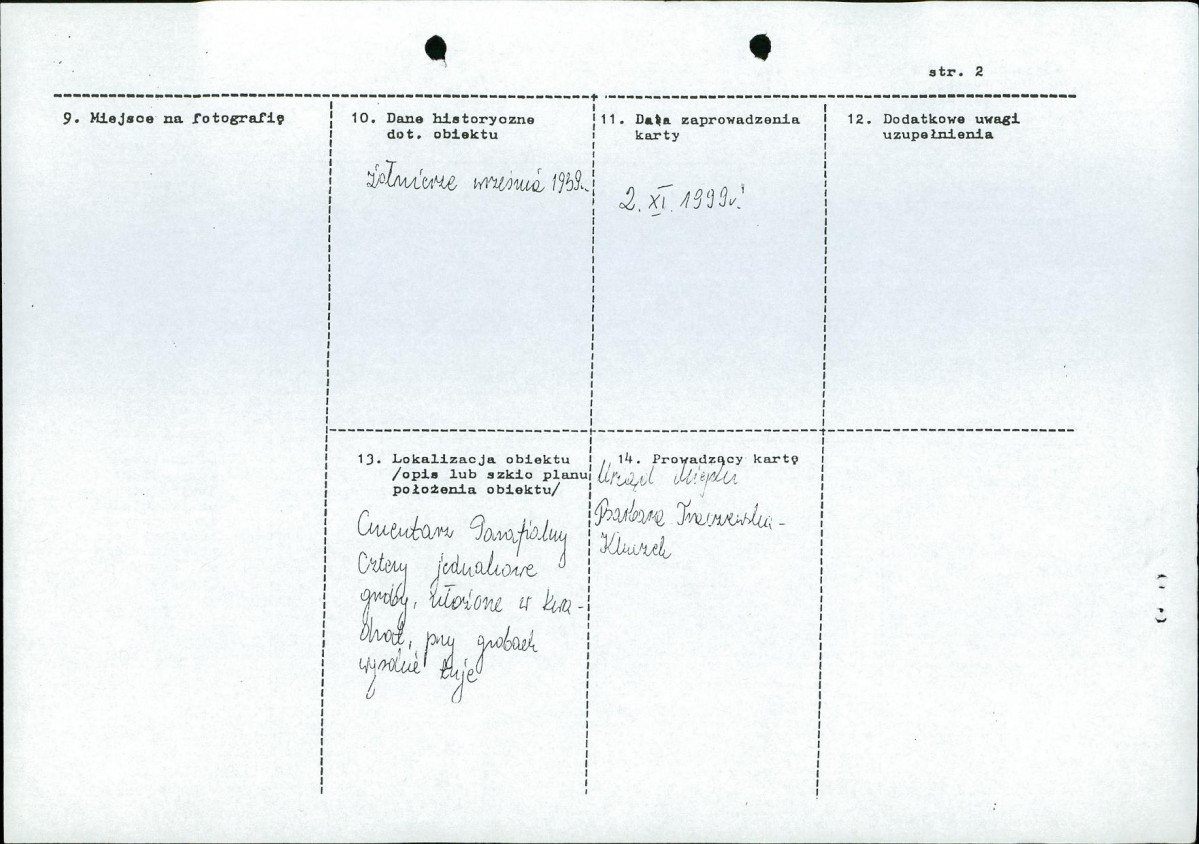 str. 2
9. Miejsce na fotografię
10. Dane historyczne
dot. obiektu
żołnierze września 1939r.
11. Data zaprowadzenia
karty
2. XI. 1999r.
12. Dodatkowe uwagi
uzupełnienia
13. Lokalizacja obiektu
/opis lub szkic planu
położenia obiektu/
Cmentarz Parafialny
Cztery jednakowe
groby, ułożone w kwa-
drat, przy grobach
wysokie tuje
14. Prowadzący kartę
Urząd Miejski
Barbara